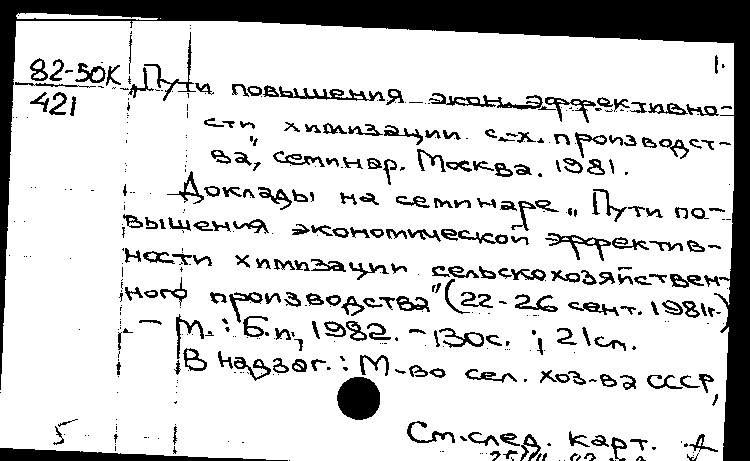 1.
82-50К „Пути повышения экон. эффективно-
421
сти химизации с.-х. производст-
ва", семинар. Москва. 1981.
Доклады на семинаре „Пути по-
вышения экономической эффектив-
ности химизации сельскохозяйствен-
ного производства" (22-26 сент. 1981г.)
. - М.: Б.и., 1982. - 130с. ; 21см.
В надзаг.: М-во сел. хоз-ва СССР,
5
См. след. карт.